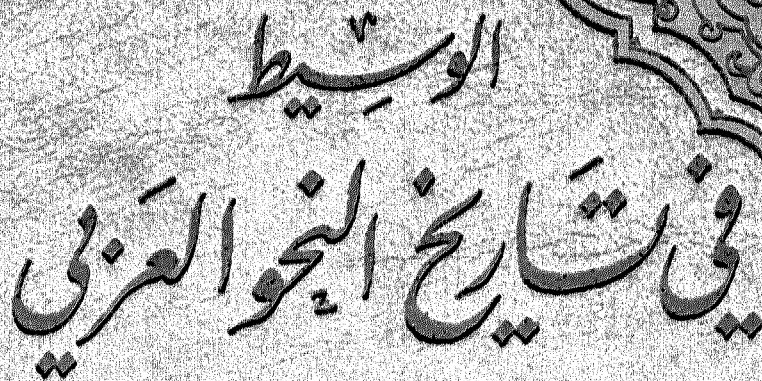 الوسيط
في تاريخ النحو العربي